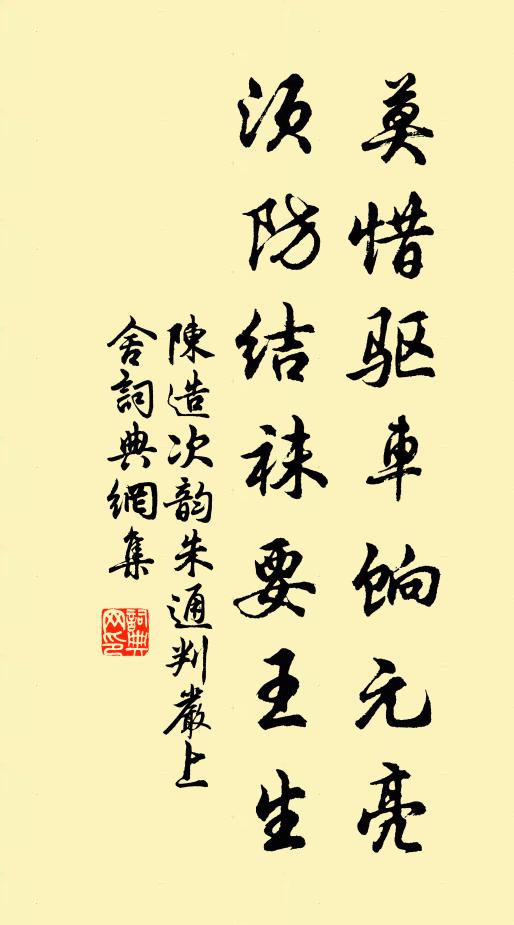 莫惜驱車饷元亮
须防结袜要王生
陳造次韵朱通判嚴上
舍詞典網集
詞典網印